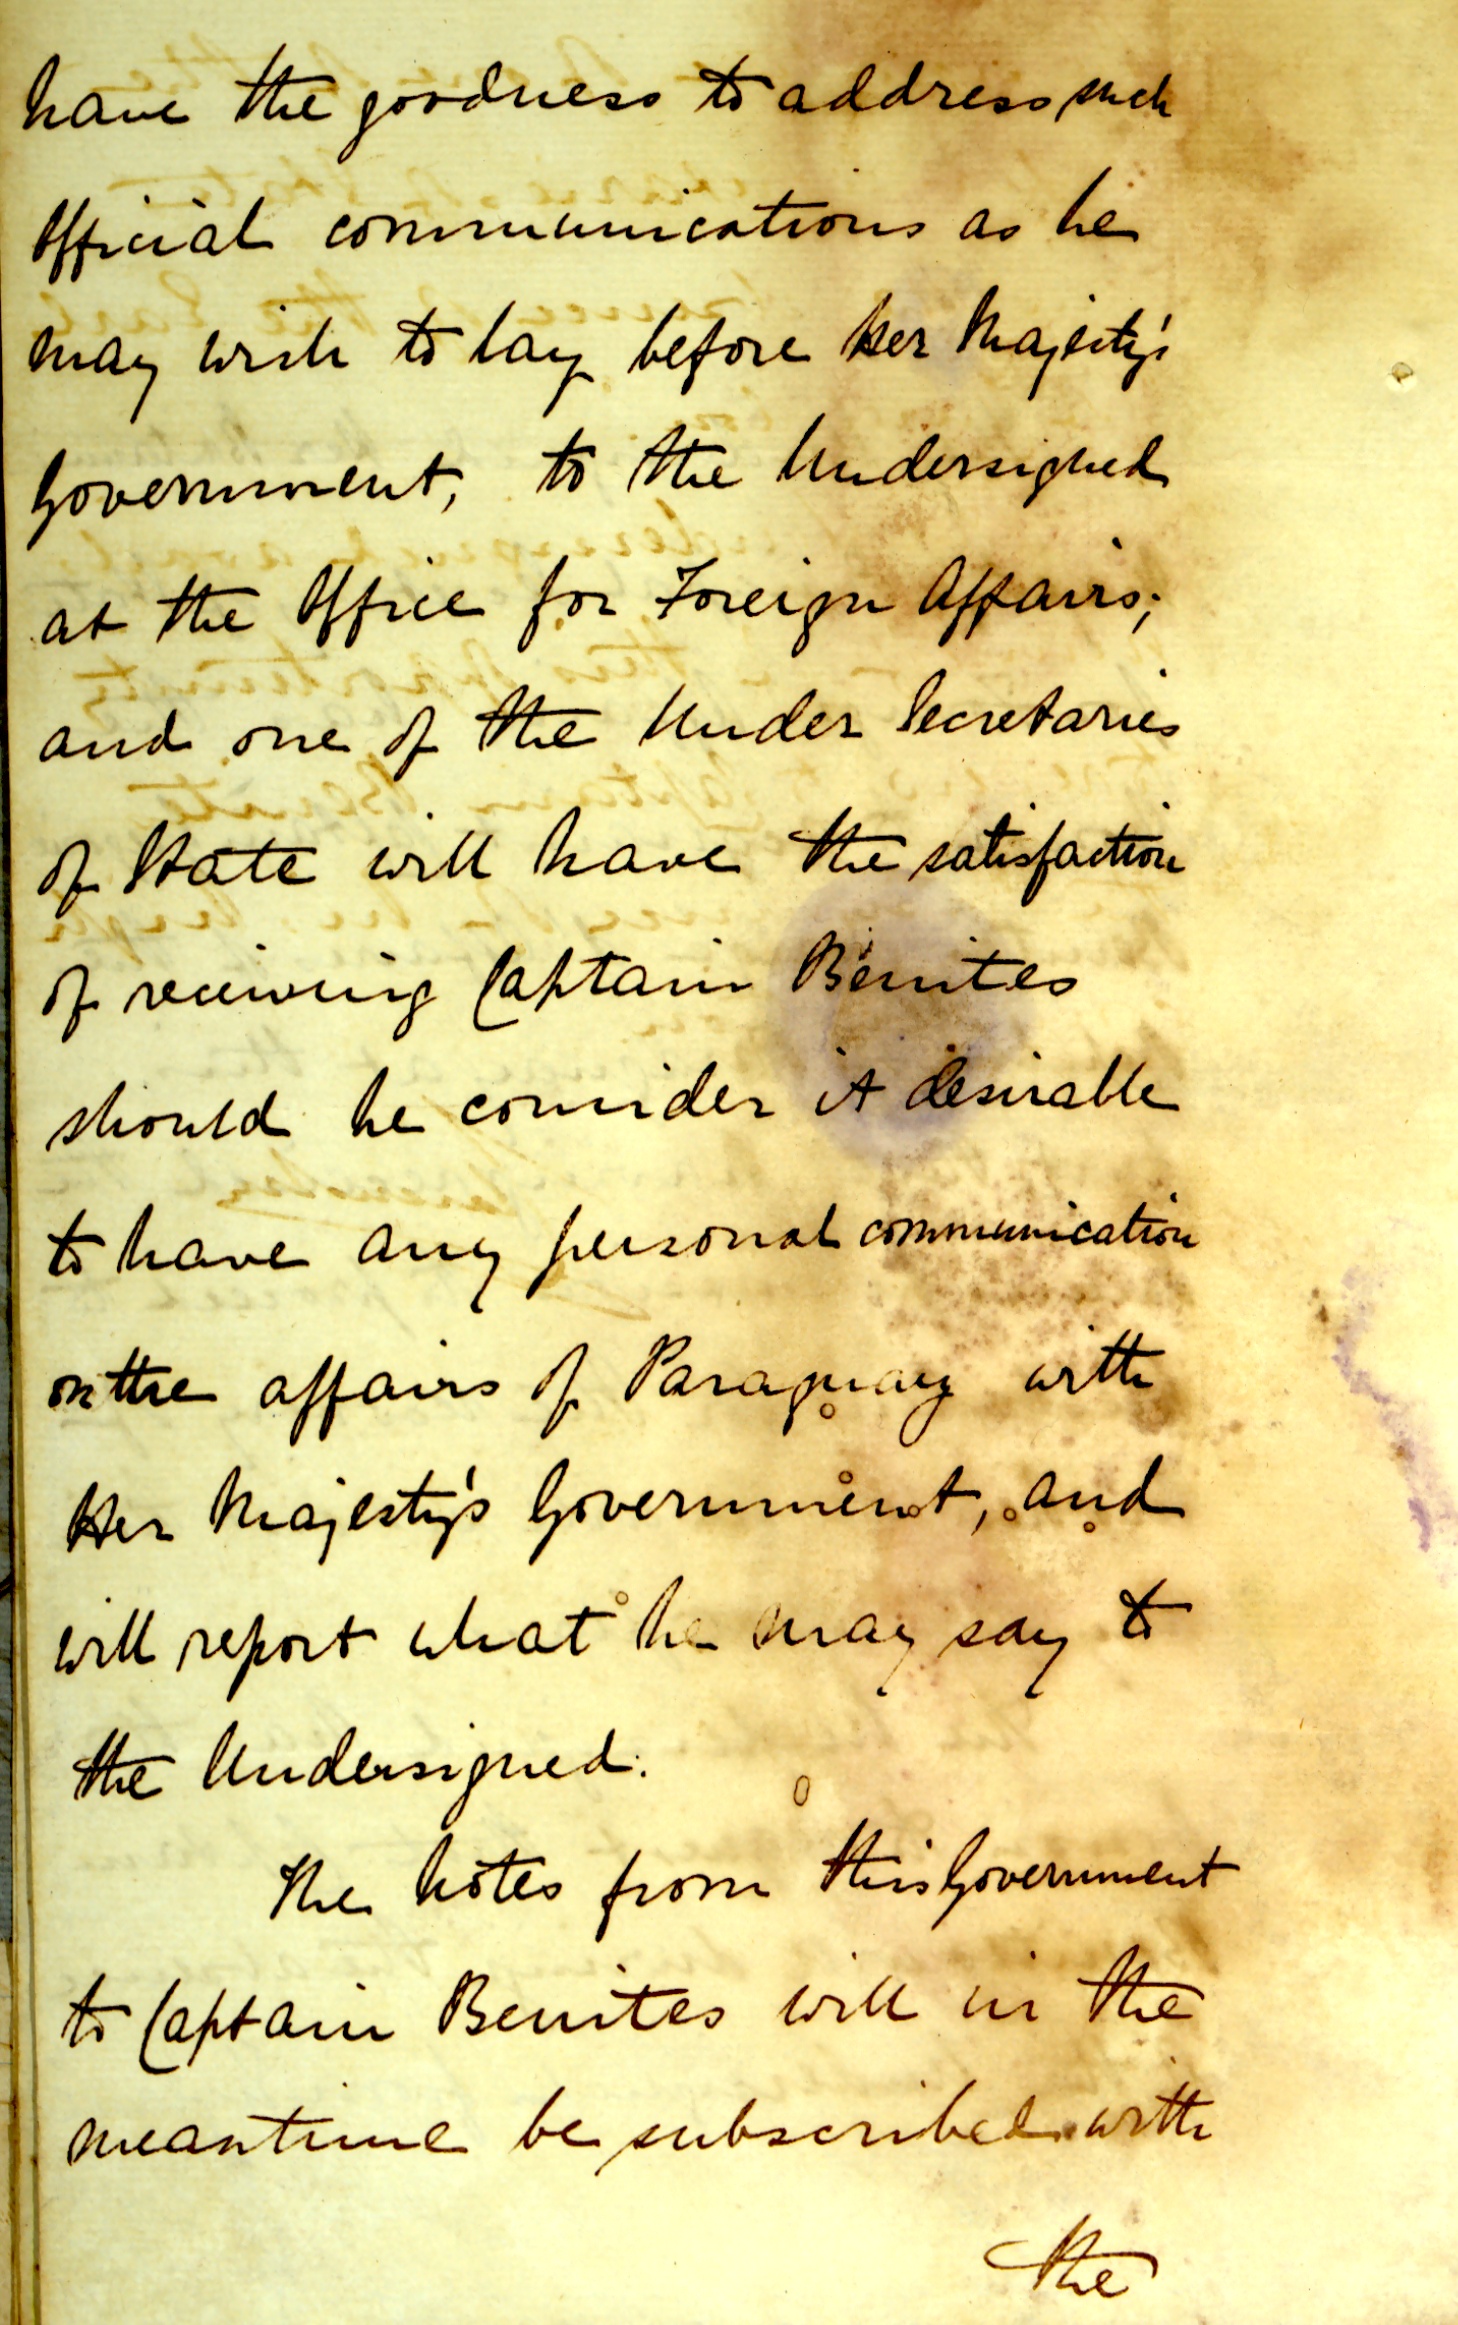 have the goodness to address such
Official communications as he
may wish to lay before Her Majesty's
Government, to the Undersigned
at the Office for Foreign Affairs;
and one of the Under Secretaries
of State will have the satisfaction
of receiving Captain Benites
should he consider it desirable
to have any personal communication
on the affairs of Paraguay with
Her Majesty's Government, and
will report what he may say to
the Undersigned.
The Notes from this Government
to Captain Benites will in the
meantime be subscribed with
the